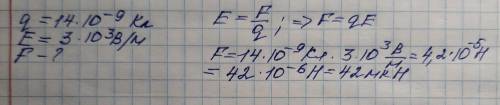 q = 14·10⁻⁹ Кл
E = 3·10³ В/м
F – ?
E = F/q ; => F = qE
F = 14·10⁻⁹ Кл · 3·10³ В/м = 4,2·10⁻⁵ Н
= 42·10⁻⁶ Н = 42 мкН